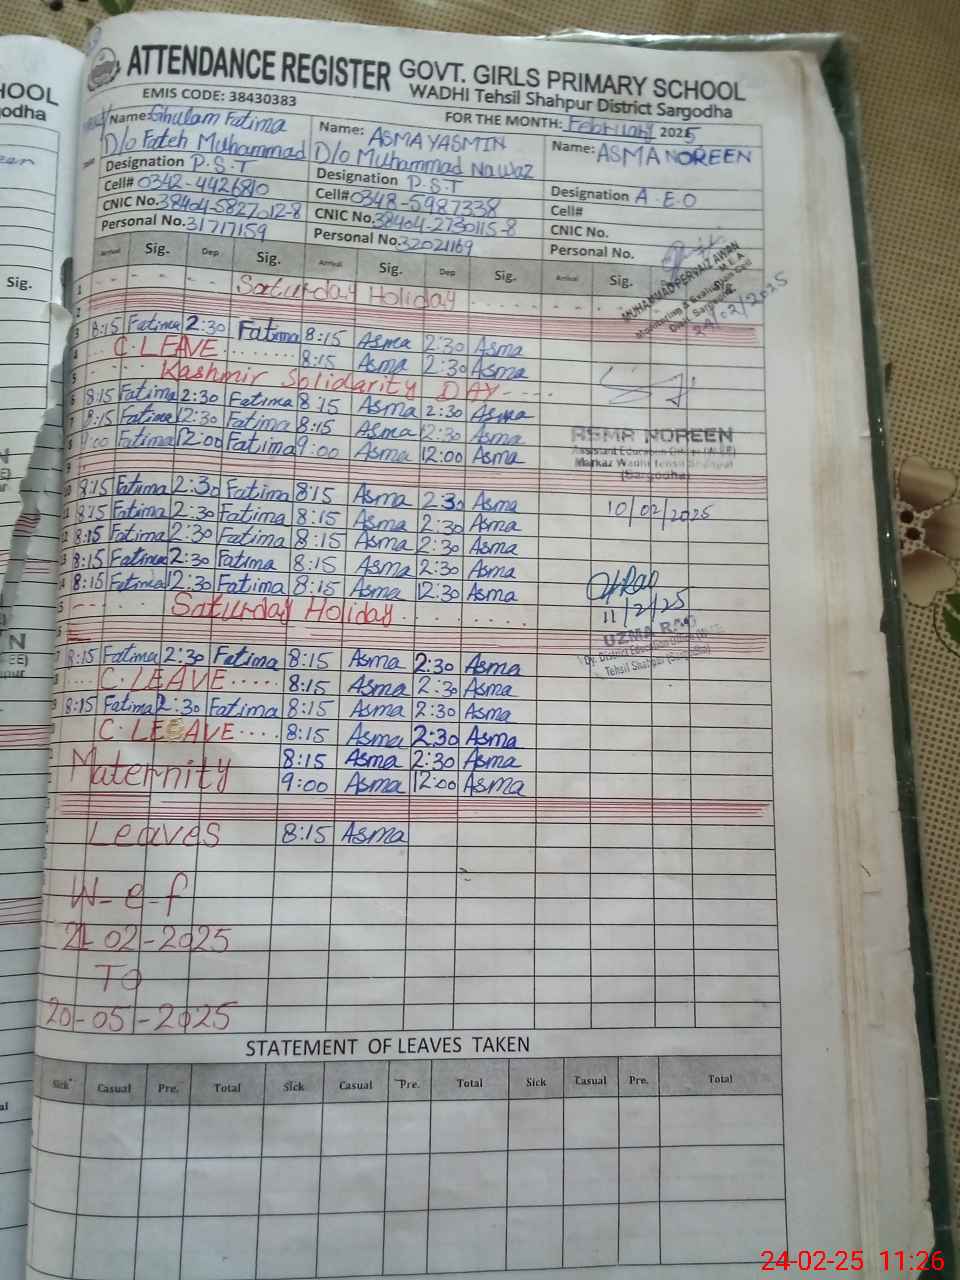 HOOL
odha
ATTENDANCE REGISTER GOVT. GIRLS PRIMARY SCHOOL
WADHI Tehsil Shahpur District Sargodha
EMIS CODE: 38430383
FOR THE MONTH: February 2025
Name: Ghulam Fatima
D/o Fateh Muhammad
Designation P.S.T
Cell# 0342-4426810
CNIC No. 38404-5827012-8
Personal No. 31717159
Name: ASMA YASMIN
D/o Muhammad Nawaz
Designation P.S.T
Cell# 0348-5987338
CNIC No. 38404-2730115-8
Personal No. 32021169
Name: ASMA NOREEN
Designation A.E.O
Cell#
CNIC No.
Personal No.
Arrival Sig. Dep Sig. Arrival Sig. Dep Sig. Arrival Sig.
1 Saturday Holiday
2
3 8:15 Fatima 2:30 Fatima 8:15 Asma 2:30 Asma
4 C.LEAVE 8:15 Asma 2:30 Asma
5 Kashmir Solidarity DAY
6 8:15 Fatima 2:30 Fatima 8:15 Asma 2:30 Asma
7 8:15 Fatima 12:30 Fatima 8:15 Asma 12:30 Asma
8 9:00 Fatima 12:00 Fatima 9:00 Asma 12:00 Asma
9
10 8:15 Fatima 2:30 Fatima 8:15 Asma 2:30 Asma
8:15 Fatima 2:30 Fatima 8:15 Asma 2:30 Asma
8:15 Fatima 2:30 Fatima 8:15 Asma 2:30 Asma
8:15 Fatima 2:30 Fatima 8:15 Asma 2:30 Asma
8:15 Fatima 12:30 Fatima 8:15 Asma 12:30 Asma
Saturday Holiday
8:15 Fatima 2:30 Fatima 8:15 Asma 2:30 Asma
C.LEAVE 8:15 Asma 2:30 Asma
8:15 Fatima 2:30 Fatima 8:15 Asma 2:30 Asma
C.LEAVE 8:15 Asma 2:30 Asma
Maternity 8:15 Asma 2:30 Asma
9:00 Asma 12:00 Asma
Leaves 8:15 Asma
W-e-f
21-02-2025
TO
20-05-2025
MUHAMMAD PERVAIZ AWAN
M.E.A
Monitoring & Evaluation Cell
Distt. Sargodha
24/02/2025
ASMA NOREEN
Assistant Education Officer
Markaz Wadhi Tehsil Shahpur
(Sargodha)
10/02/2025
11/2/25
UZMA RAO
Dy. District Education Officer
Tehsil Shahpur (Sargodha)
STATEMENT OF LEAVES TAKEN
Sick Casual Pre. Total Sick Casual Pre. Total Sick Casual Pre. Total
Sig.
24-02-25 11:26